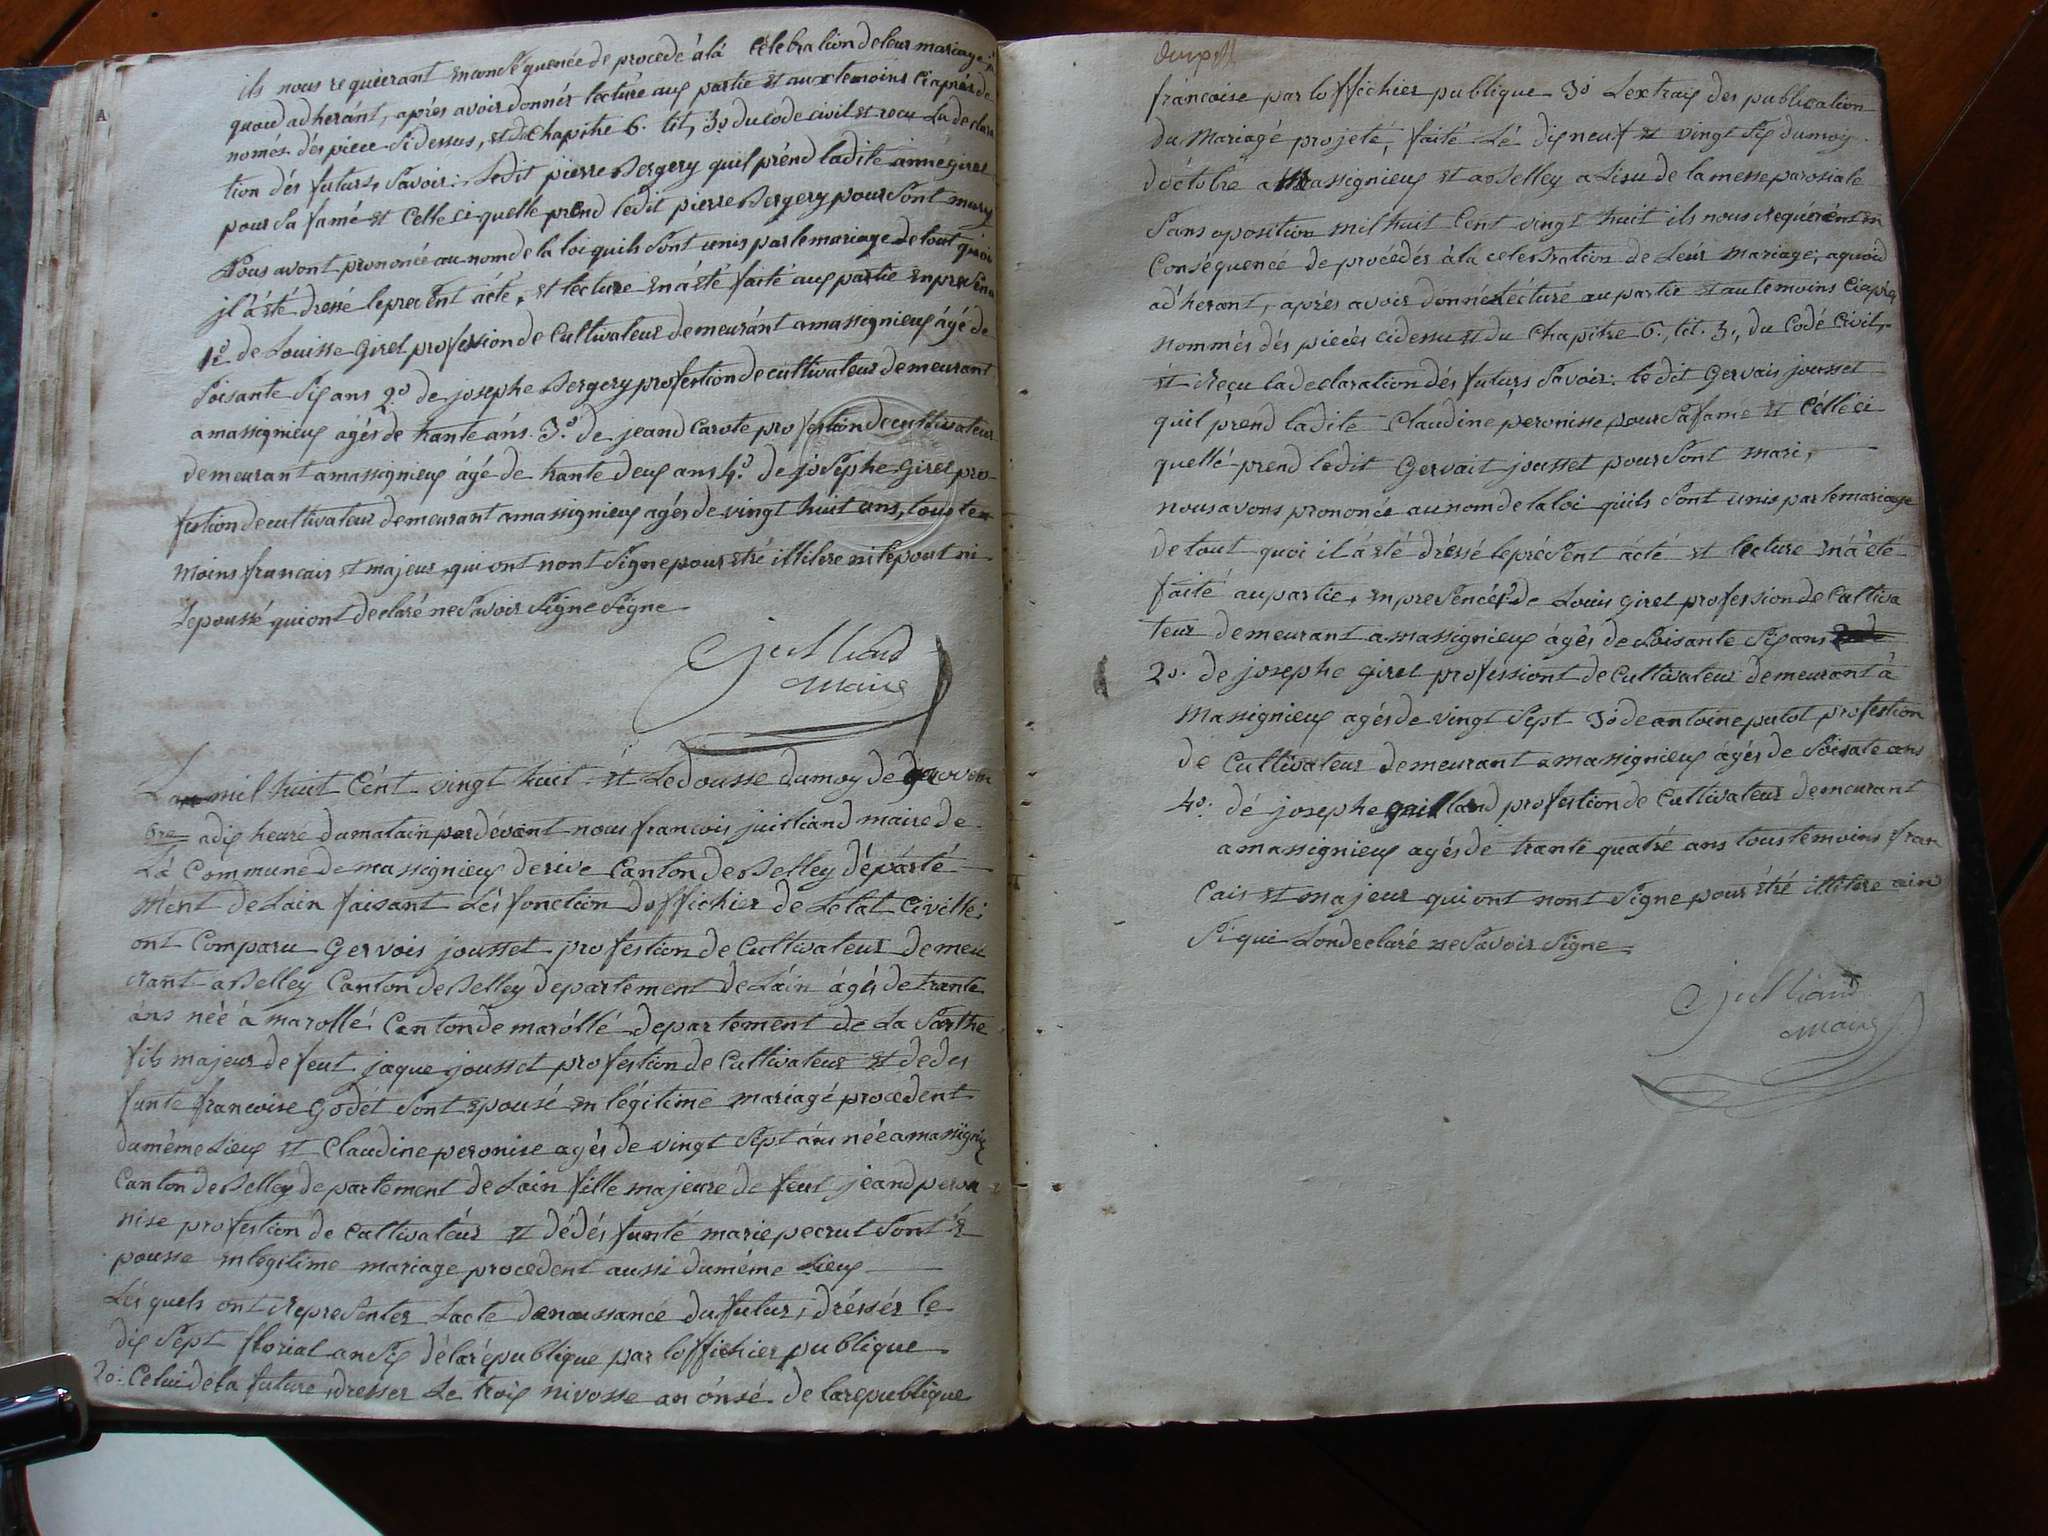 ils nous requierant en conséquence de procede à la célébration de leur mariage
quaud adherant, après avoir donnér lecture aux partie et aux temoins ciaprés de
nomez dés piece Sidessus, et du Chapitre 6. tit, 3o du code civil et recu La declara
tion dés futurs, Savoir: Ledit pierre Bergery quil prénd ladite anne girel
pour Sa famé et Celle ci quelle prend ledit pierre Bergery pour Sont mary
Nous avont prononcé au nom de la loi quils Sont unis par le mariage de tout quoi
jl à été dressé le present acte, et lecture en à été faité aux partie en presena
1o de Louisse Girel profession de Cultivateur demeuránt a massignieux ágé de
Soisante Six ans 2o de josephe Bergery profestion de cultivateur demeurant
a massignieux agés de trante áns. 3o de jeand Carote profestion de cultivateur
demeurant a massignieux ágé de trante deux ans 4o de joSephe Girel pro-
festion de cultivateur demeurant a massignieux agés de vingt huit ans, tous te
moins francais et majeur, qui ont nont Signe pour etré illitere ni lepout ni
Lepoussé qui ont declaré ne Savoir Signe Signe
Juilliand
Maire
Lan mil huit Cént vingt huit et Le dousse du moy de novem
bre a dix heuré du matain par dévant nous francois juilliand maire de
Lá Commune de massignieux de rive Canton de Belley départé
mént de Lain faisant Lés fonction doffichier de Letat Civille;
ont Comparu Gervois jousset profestion de Cultivateur demeu
rant a Belley Canton de Belley departement de Láin ágés de trante
áns néé á marollé Canton de maróllé departement de La Sarthe
fils majeur de feut jaque jousset profestion de Cultivateur et de des
funte francoise Godét Sont epousé en légitime mariagé procedent
du méme Lieux et Claudine peronise agés de vingt Sept áns néé a massigniex
Canton de Belley departement de Lain fille majeure de feut jeand peron
nise profestion de Cultivatéur et dédés funté marie pecrut Sont É
pousse en legitime mariage procedent aussi du méme Lieux
Lés quels ont representer Lacte de naissance du futur, dréssér le
dix Sept florial an Six délarépublique par loffichier publique
2o Celui de la future, dresser Le trois nivosse an ónsé de la republique
francoise par loffichier publique 3o Lextrais des publication
du Mariagé projeté, faité Lé dix neuf et vingt Six du moy
doctobre a Massignieux et a Belley a Lisu de la messe parosiale
Sans oposition mil huit Cent vingt huit ils nous requérent en
Conséquence de procédér à la celebration de Leur mariage, aquoid
adherant, aprés avoir donné lécturé au partie et au temoins Ciaprés
nommés dés piecés cidessu et du Chapitre 6., tit. 3., du Codé Civil,
et reçu la declaration dés futurs Savoir: le dit Gervais jousset
quil prend ladite Claudine peronisse pour Sa famé et Célléci
quellé prend ledit Gervait jousset pour Sont mari,
nous avons prononcé au nom de la loi quils Sont unis par le mariage
de tout quoi il à été dréssé le présent ácté et lecture en á été
faité au partie, en preSéncé 1o de Louis Girel profession de Cultiva
teur demeurant a massignieux ágés de Soisante Six ans
2o. de josephe Girel professiont de Cultivateur demeurant à
Massignieux agés de vingt Sept 3o de antoine putot profestion
de Cultivateur demeurant a massignieux ágés de Soisate ans
4o. dé josephe guilland profestion de Cultivateur demeurant
a massignieux agés de trante quatré ans tous temoins fran
Cais et majeur qui ont nont Signe pour étré illitere ain
Si qui Londeclaré ne Savoir Signe
Juilliand
Maire